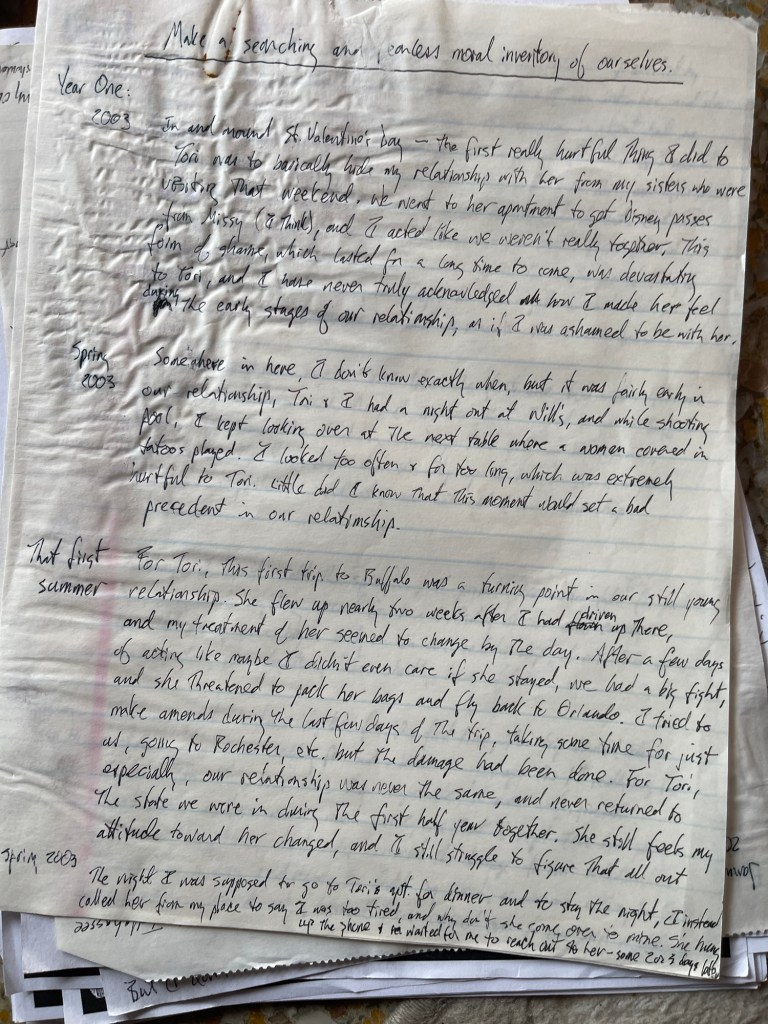 Make a searching and fearless moral inventory of ourselves.
Year One:
2003
In and around St. Valentine's Day — the first really hurtful thing I did to
Tori was to basically hide my relationship with her from my sisters who were
visiting that weekend. We went to her apartment to get Disney passes
from Missy (I think), and I acted like we weren't really together. This
form of shame, which lasted for a long time to come, was devastating
to Tori, and I have never truly acknowledged how I made her feel
during the early stages of our relationship, as if I was ashamed to be with her.
Spring
2003
Somewhere in here, I don't know exactly when, but it was fairly early in
our relationship, Tori & I had a night out at Will's, and while shooting
pool, I kept looking over at the next table where a women covered in
tatoos played. I looked too often & for too long, which was extremely
hurtful to Tori. Little did I know that this moment would set a bad
precedent in our relationship.
That first
summer
For Tori, this first trip to Buffalo was a turning point in our still young
relationship. She flew up nearly two weeks after I had driven up there,
and my treatment of her seemed to change by the day. After a few days
of acting like maybe I didn't even care if she stayed, we had a big fight,
and she threatened to pack her bags and fly back to Orlando. I tried to
make amends during the last few days of the trip, taking some time for just
us, going to Rochester, etc. but the damage had been done. For Tori,
especially, our relationship was never the same, and never returned to
the state we were in during the first half year together. She still feels my
attitude toward her changed, and I still struggle to figure that all out
Spring 2003
The night I was supposed to go to Tori's apt for dinner and to stay the night, I instead
called her from my place to say I was too tired, and why don't she come over to mine. She hung
up the phone & waited for me to reach out to her – some 2 or 3 days later
But I